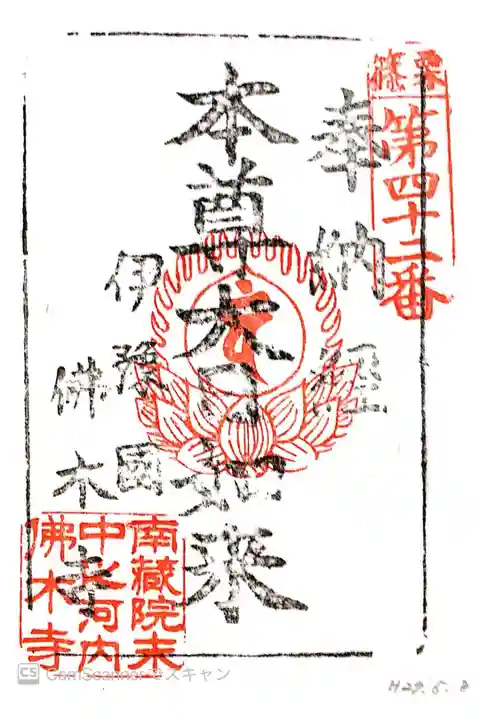 篠栗
第四十二番
奉納経
本尊大日如来
伊豫國
佛木寺
南藏院末
中ノ河内
佛木寺
CS CamScannerでスキャン
H29.5.8